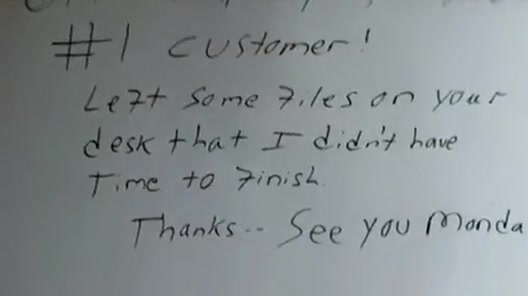 #1 customer!
Left some files on your
desk that I didn't have
Time to finish.
Thanks.. See you Monda